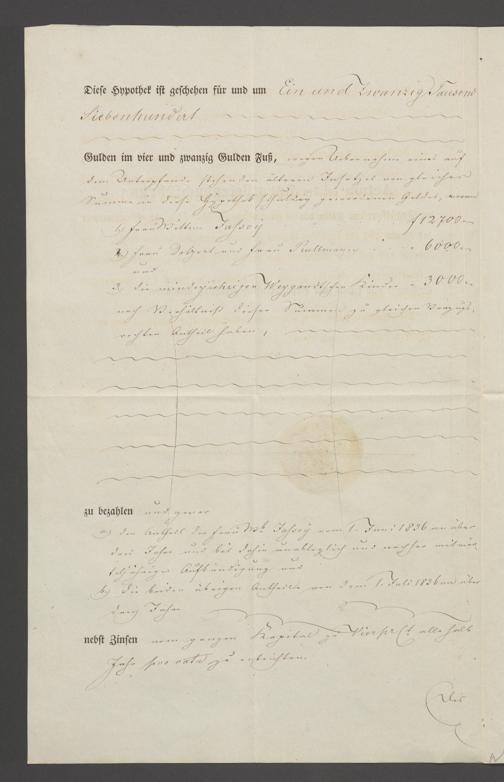 Diese Hypothek ist geschehen für und um Ein und Zwanzig Tausend
Siebenhundert
Gulden im vier und zwanzig Gulden Fuß, wegen Uebernahme eines auf
dem Unterpfande stehenden ältern Insatzes von gleicher
Summe in diese Hypothek schuldig gewordenen Geldes, wovon
1) Frau Wittwe Jassoy f 12700.–
2) Frau und Frau 6000.–
und
3) die minderjährigen Weygandtschen Kinder 3000.–
nach Verhältniß dieser Summen zu gleichen Vorzugs-
rechten Antheil haben,
zu bezahlen und zwar
a) den Antheil der Frau Wb. Jassoy vom 1. Juni 1836 an über
drei Jahre und bis dahin unableglich und nachher mit
halbjähriger Aufkündigung und
b) die beiden übrigen Antheile von dem 1. Juli 1836 an über
drey Jahre
nebst Zinsen vom ganzen Kapital zu Vier prCt. alle halb
Jahr pro rata zu entrichten.
Des